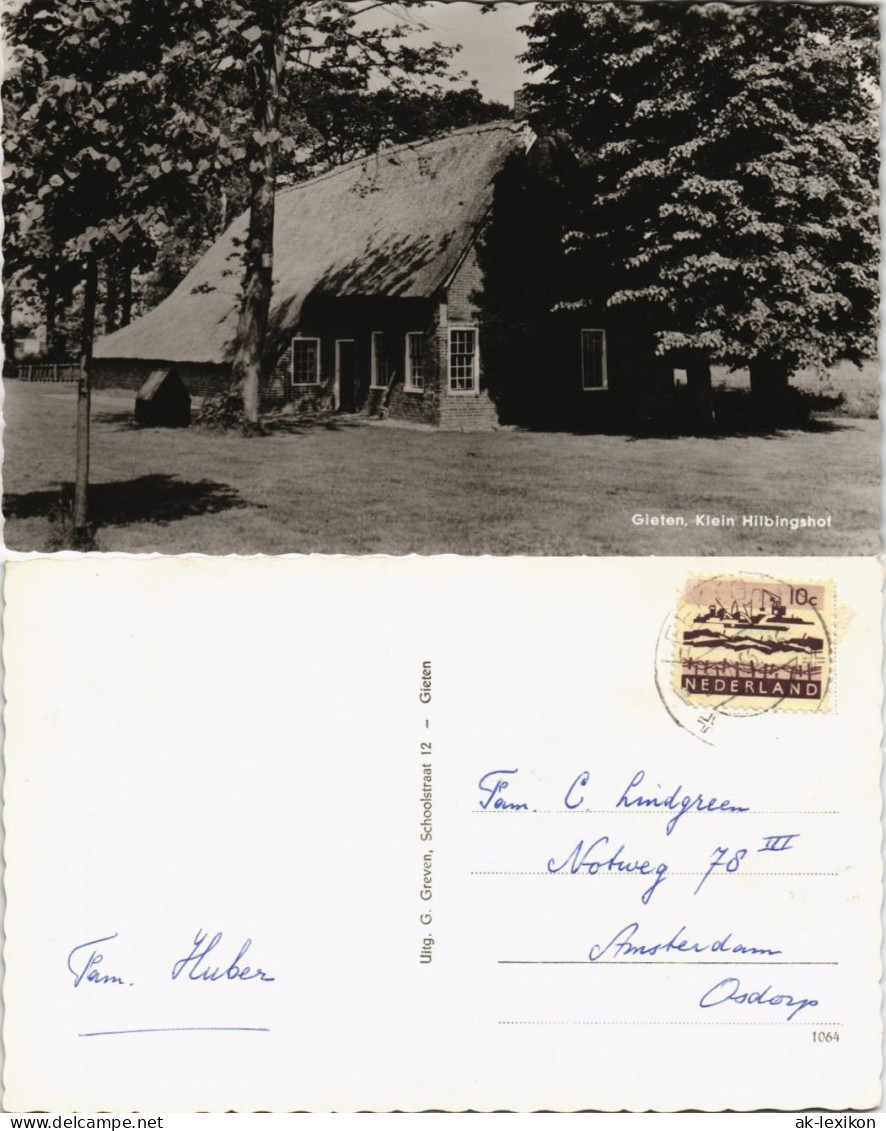 Gieten, Klein Hilbingshof
10c
NEDERLAND
Uitg. G. Greven, Schoolstraat 12 – Gieten
Fam. C. Lindgreen
Notweg 78 III
Amsterdam
Osdorp
Fam. Huber
1064
Delcampe.net
ak-lexikon